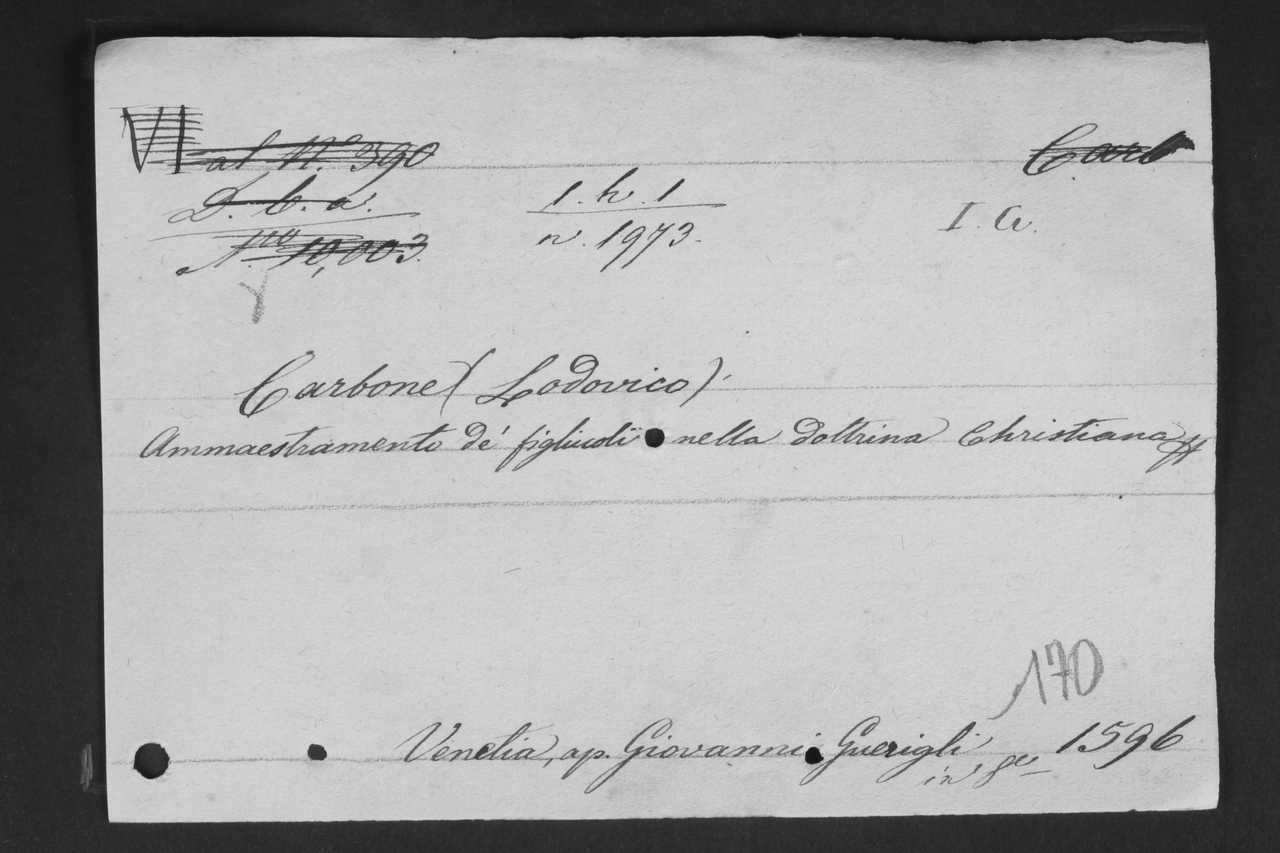 VI al N.º 390
Carb
D. b. a.
1. h. 1
I. G.
N.ro 10,003.
n. 1973.
Carbone (Lodovico).
Ammaestramento de' figliuoli nella dottrina Christiana
170
Venetia, ap. Giovanni Guerigli 1596
in 8º